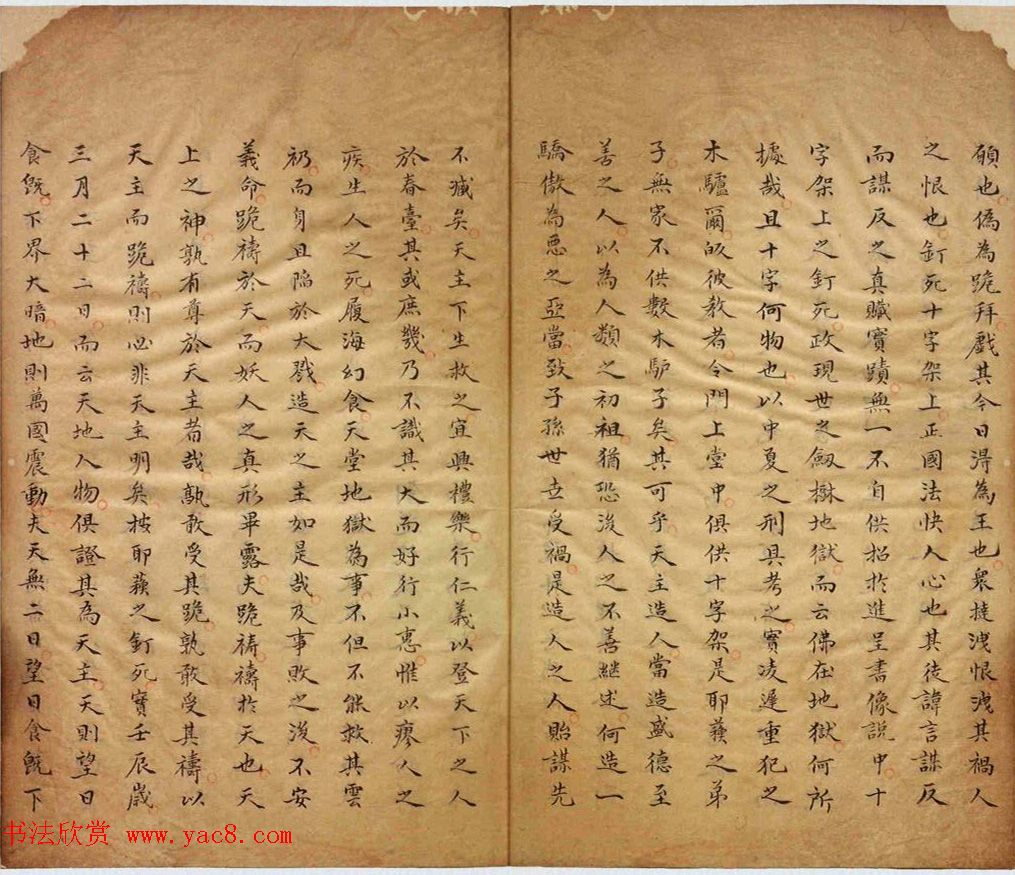 願也偽為跪拜戲其今日淂為王也衆撻洩恨洩其禍人
之恨也釘死十字架上正國法快人心也其徒諱言謀反
而謀反之真贓實蹟無一不自供招扵進呈書像説中十
字架上之釘死政現世之劔樹地獄而云佛在地獄何所
據哉且十字何物也以中夏之刑具考之實凌遲重犯之
木驢爾皈彼教者令門上堂中俱供十字架是耶蘓之弟
子無家不供數木驴子矣其可乎天主造人當造盛德至
善之人以為人類之初祖猶恐淩人之不善継述何造一
驕傲為惡之亞當致子孫世世受禍是造人之人貽謀先
不臧矣天主下生救之宜興禮樂行仁義以登天下之人
於春臺其或庶幾乃不識其大而好行小惠惟以療人之
疾生人之死履海幻食天堂地獄為事不但不能救其雲
礽而身且陷於大戮造天之主如是哉及事敗之後不安
義命跪禱於天而妖人之真形畢露夫跪禱禱扵天也天
上之神孰有尊於天主者哉孰敢受其跪孰敢受其禱以
天主而跪禱則必非天主明矣按耶蘓之釘死實壬辰歲
三月二十二日而云天地人物俱證其為天主天則望日
食旣下界大暗地則萬國震動夫天無二日望日食旣下
书法欣赏 www.yac8.com